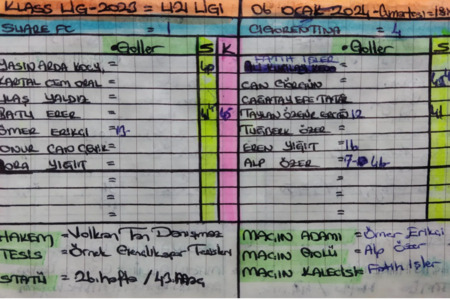 KLASS LİG-2023 = 421 LİGİ
06 OCAK-2024-Cumartesi=18:
SUARE FC = 1
CİGORENTİNA = 4
•Goller S K
•Goller S
YASİN ARDA KOÇU =
FATİH İŞLER
KARTAL CEM ORAL =
CAN GÖRGÜN =
İLKAŞ YALDIZ =
ÇAĞATAY EFE TATAR
BATU ERER =
ÖMER ERİKÇİ =
TUĞBERK ÖZER =
ONUR CAN ÇEVİK=
EREN YİĞİT = 16
BORA YİĞİT =
ALP ÖZER =7- 46
HAKEM =Volkan Tan Denizmez
TESİS =Örnek Gençlikspor Tesisleri
STATÜ = 26.hafta / 43.Maç
MAÇIN ADAMI = Ömer Erikçi
MAÇIN GOLÜ = Alp Özer
MAÇIN KALECİSİ= Fatih İşler